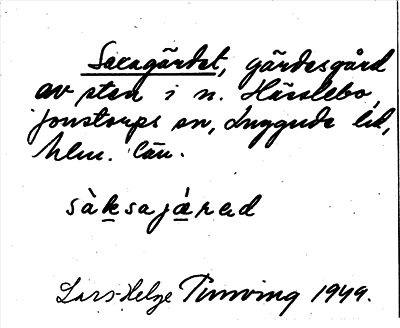 Saxagärdet, gärdesgård
av sten i n. Hässlebo,
Jonstorps sn, Luggude hd,
Mlm. län.
sàksajǽrad
Lars-Helge Tunving 1949.